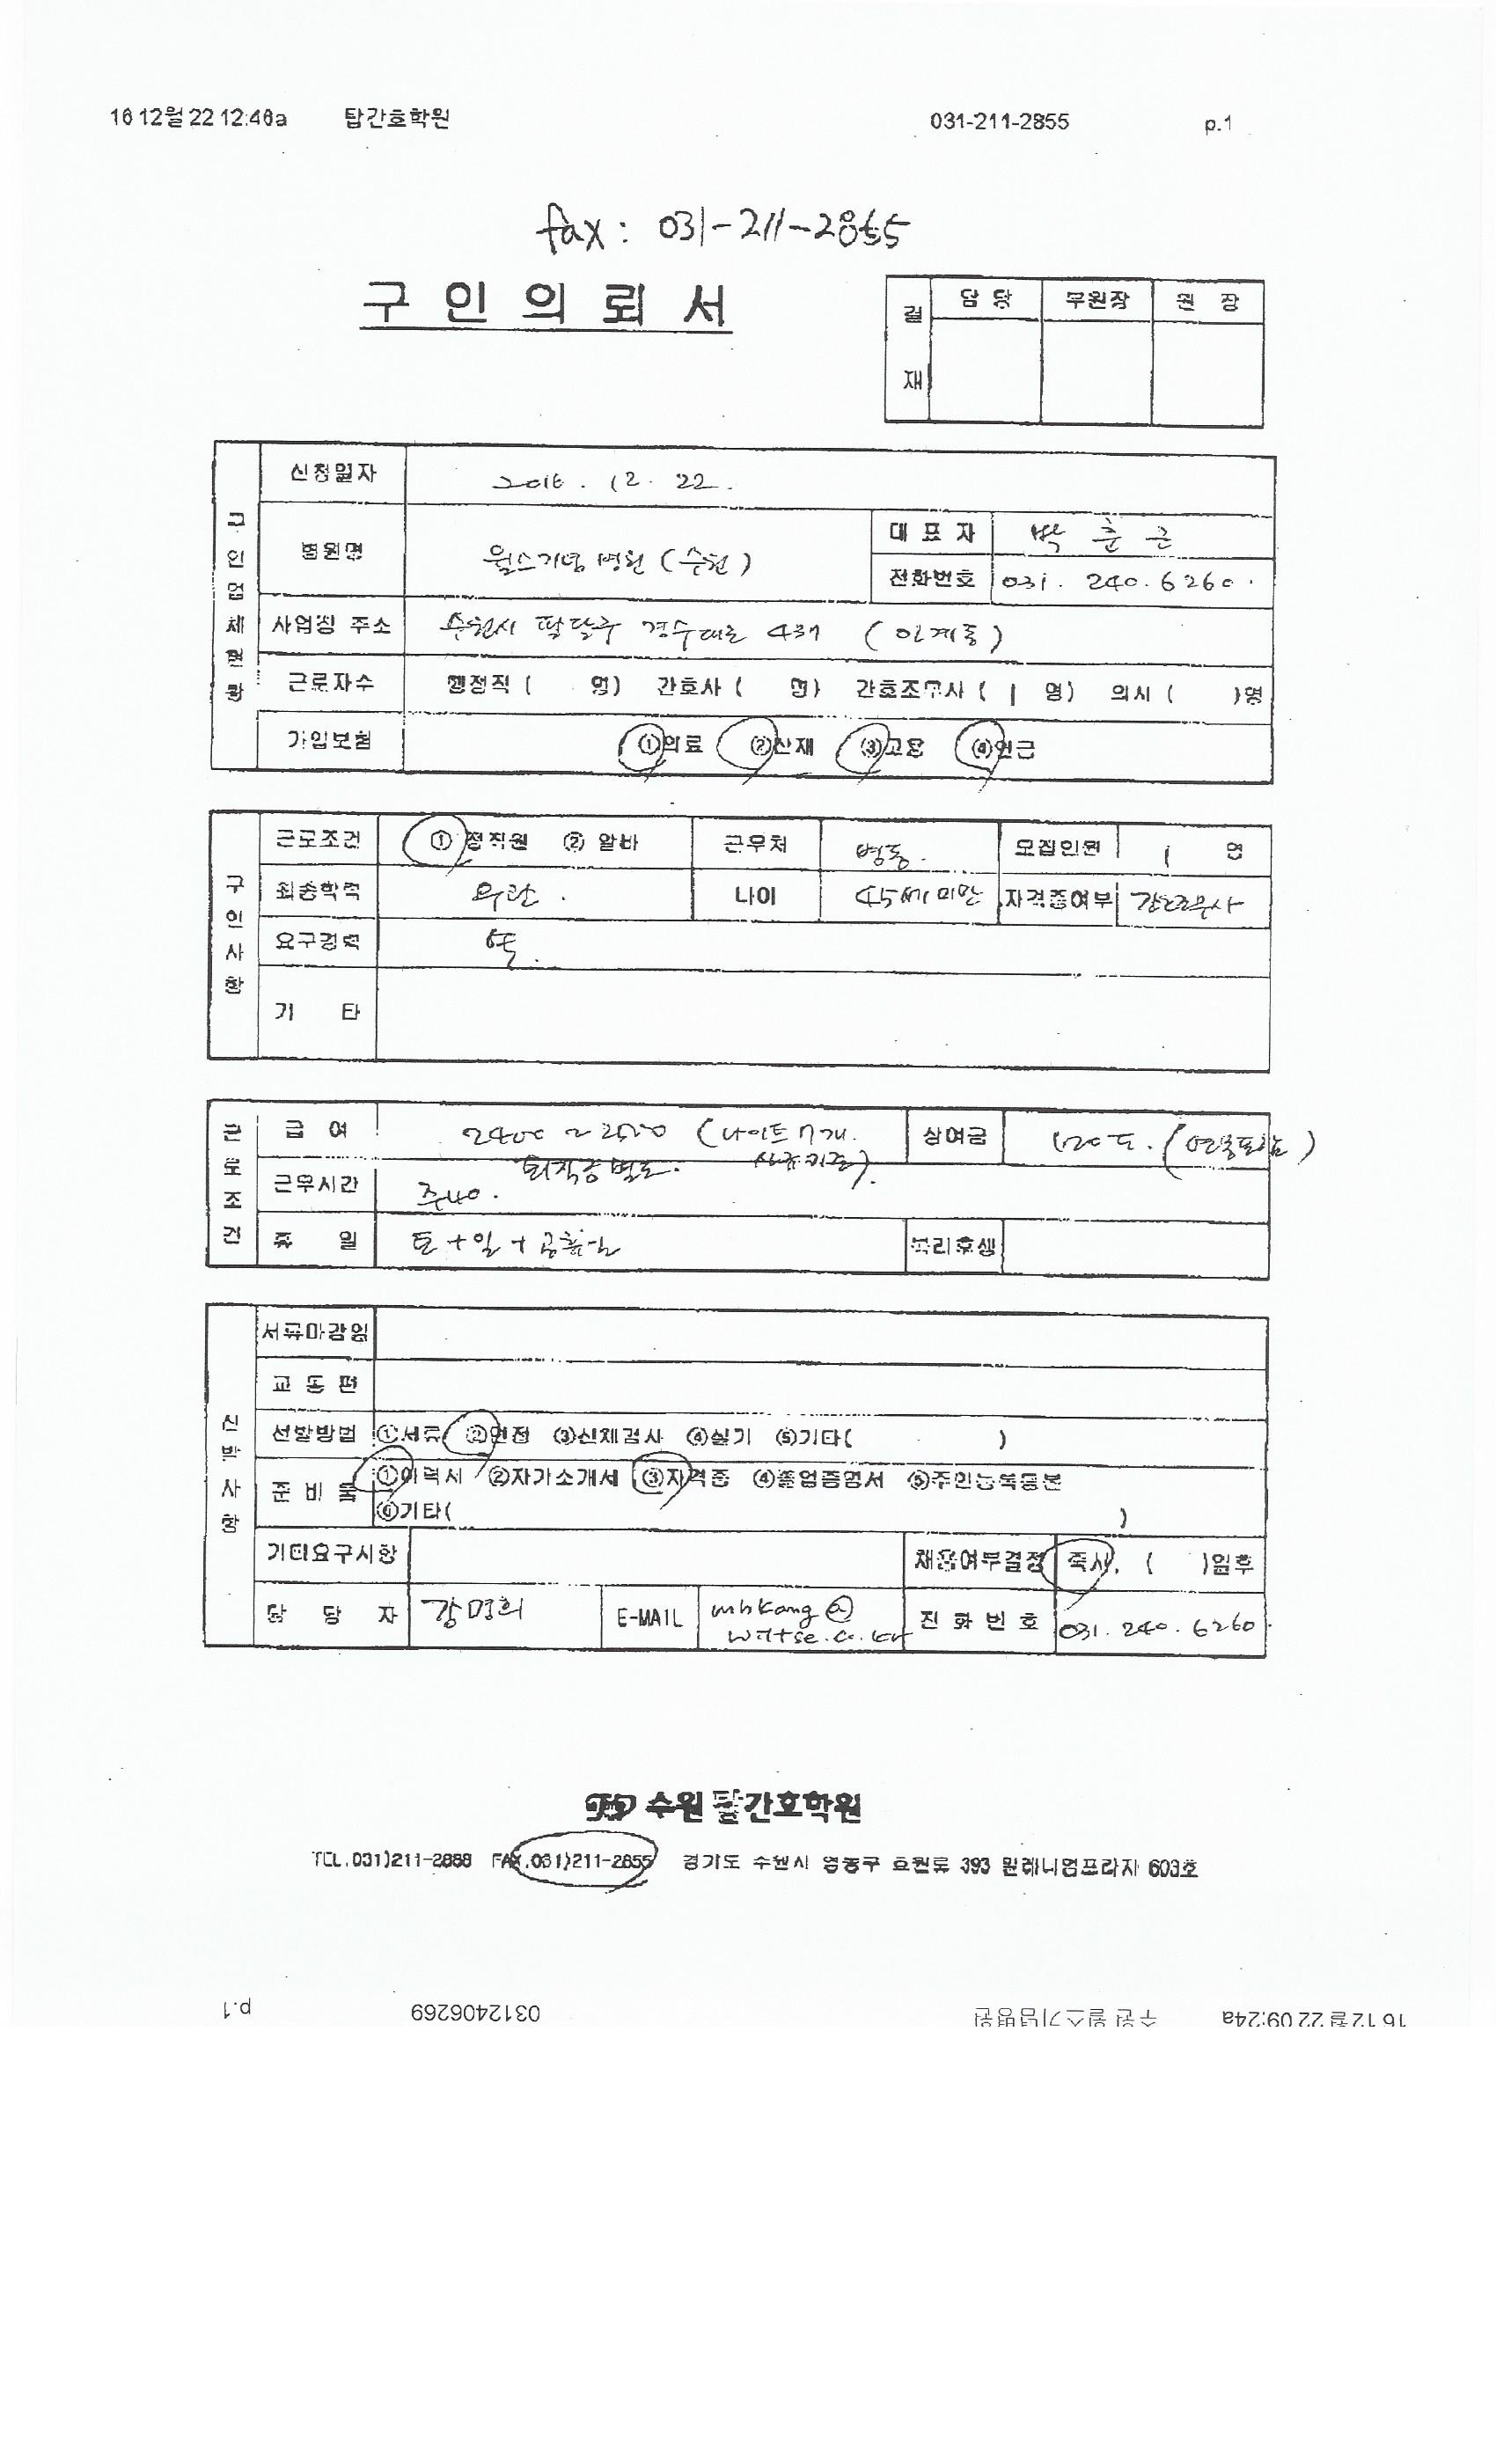 16 12월 22 12:46a 탑간호학원 031-211-2855 p.1
fax : 031-211-2855
구 인 의 뢰 서
결 재 담 당 부원장 원 장
구 인 업 체 현 황
신청일자 2016 . 12 . 22 .
병원명 윌스기념병원 (수원) 대 표 자 박 춘 근
전화번호 031 . 240 . 6260 .
사업장 주소 수원시 팔달구 경수대로 437 (인계동)
근로자수 행정직 ( 명) 간호사 ( 명) 간호조무사 ( 1 명) 의사 ( )명
가입보험 ①의료 ②산재 ③고용 ④연금
구 인 사 항
근로조건 ① 정직원 ② 알바 근무처 병동 . 모집인원 1 명
최종학력 무관 . 나이 45세 미만 자격증여부 간호조무사
요구경력 無 .
기 타
근 로 조 건
급 여 2400 ~ 2500 (나이트 7개 . 상여금 120% . (연봉포함)
퇴직금 별도 . 상주기준) .
근무시간 주40 .
휴 일 토 + 일 + 공휴일 복리후생
선 발 사 항
서류마감일
교 통 편
선발방법 ①서류 ②면접 ③신체검사 ④실기 ⑤기타( )
준 비 물 ①이력서 ②자기소개서 ③자격증 ④졸업증명서 ⑤주민등록등본
⑥기타( )
기타요구사항 채용여부결정 즉시, ( )일후
담 당 자 강명희 E-MAIL mhkang@ 전 화 번 호 031 . 240 . 6260 .
wiltse.co.kr
TOP 수원 탑간호학원
TEL.031)211-2888 FAX.031)211-2855 경기도 수원시 영통구 효원로 393 밀레니엄프라자 603호
16 12월 22 09:24a 수원 윌스기념병원 0312406269 p.1